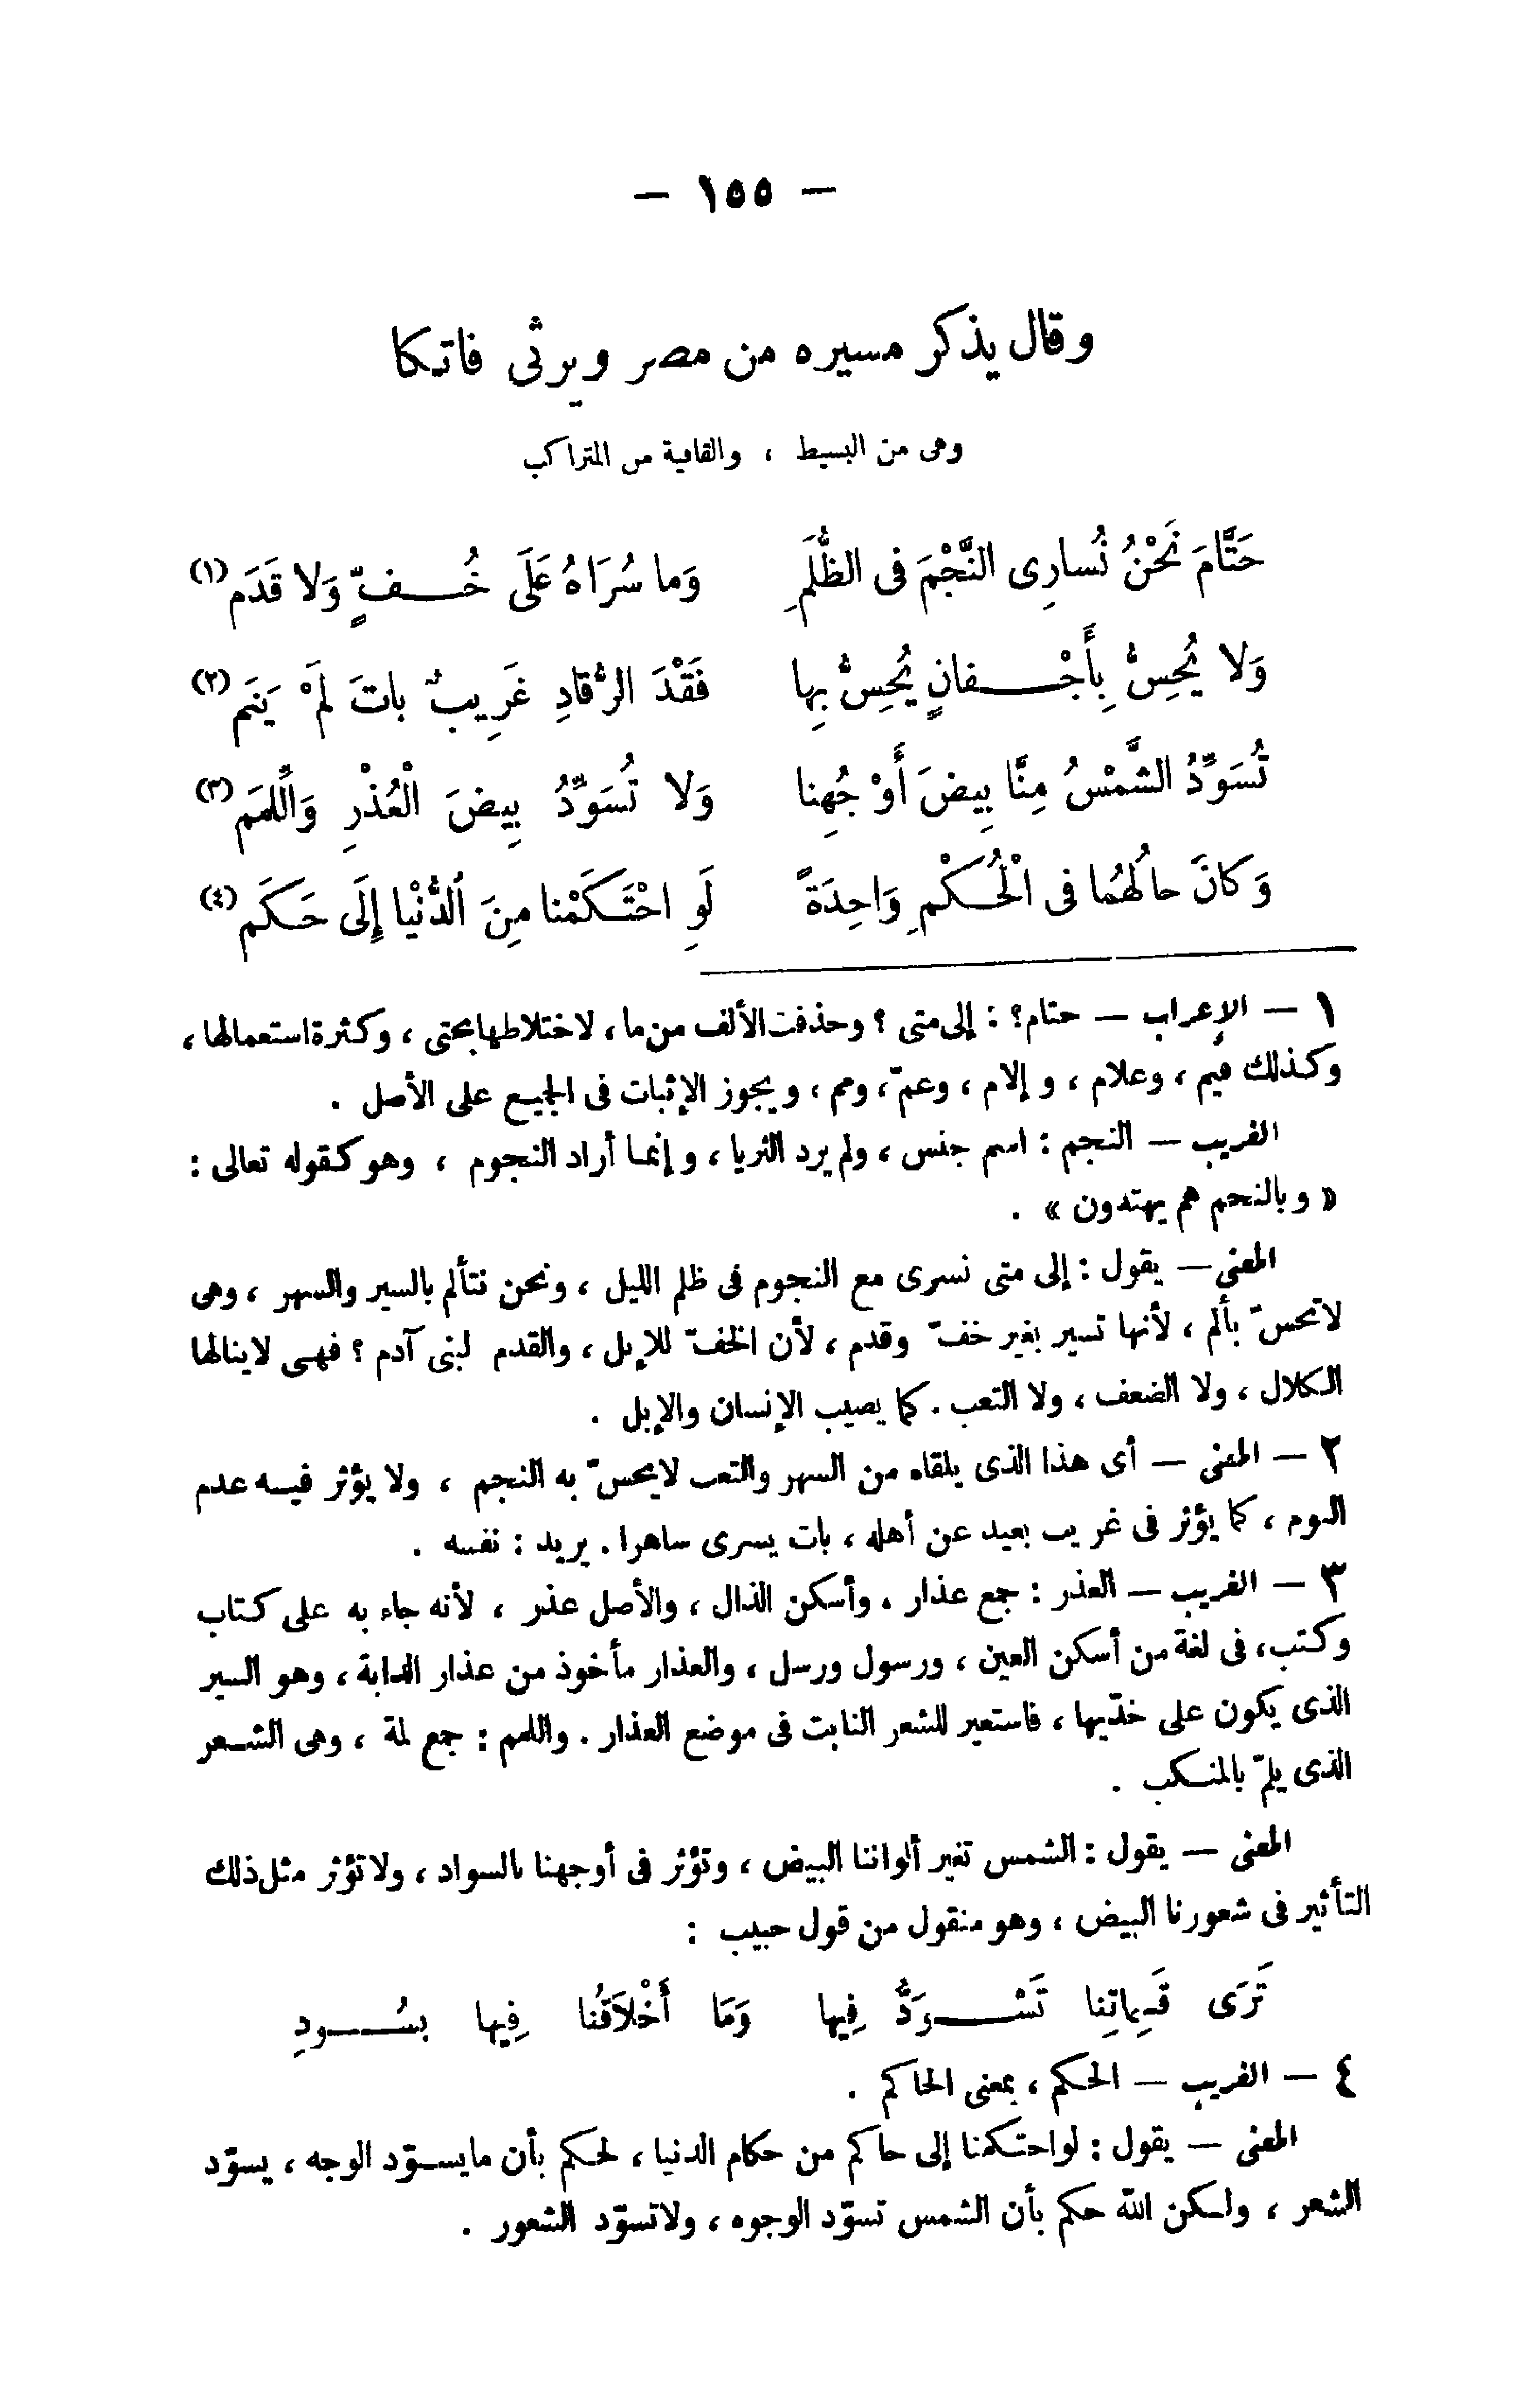 — ١٥٥ —
وقال يذكر مسيره من مصر ويرثى فاتكا
وهى من البسيط ، والقافية من المتراكب
حَتَّامَ نَحْنُ نُسارِى النَّجْمَ فى الظُّلَمِ وَما سُرَاهُ عَلَى خُفٍّ وَلا قَدَمِ (١)
وَلا يُحِسُّ بِأَجْفانٍ يُحِسُّ بِها فَقْدَ الرُّقادِ غَرِيبٌ باتَ لَمْ يَنَمِ (٢)
تُسَوِّدُ الشَّمْسُ مِنَّا بِيضَ أَوْجُهِنا وَلا تُسَوِّدُ بِيضَ الْعُذْرِ وَاللِّمَمِ (٣)
وَكانَ حالُهُما فى الْحُكْمِ وَاحِدَةً لَوِ احْتَكَمْنا مِنَ الدُّنْيا إِلَى حَكَمِ (٤)
١ — الإعراب — حتام؟ : إلى متى ؟ وحذفت الألف من ما ، لاختلاطها بحتى ، وكثرة استعمالها ،
وكذلك فيم ، وعلام ، و إلام ، وعمّ ، ومم ، ويجوز الإثبات فى الجميع على الأصل .
الغريب — النجم : اسم جنس ، ولم يرد الثريا ، و إنما أراد النجوم ، وهو كقوله تعالى :
« وبالنجم هم يهتدون » .
المعنى — يقول : إلى متى نسرى مع النجوم فى ظلم الليل ، ونحن نتألم بالسير والسهر ، وهى
لاتحسّ بألم ، لأنها تسير بغير خفّ وقدم ، لأن الخفّ للإبل ، والقدم لبنى آدم ؟ فهى لاينالها
الكلال ، ولا الضعف ، ولا التعب . كما يصيب الإنسان والإبل .
٢ — المعنى — أى هذا الذى يلقاه من السهر والتعب لايحسّ به النجم ، ولا يؤثر فيه عدم
النوم ، كما يؤثر فى غريب بعيد عن أهله ، بات يسرى ساهرا . يريد : نفسه .
٣ — الغريب — العذر : جمع عذار . وأسكن الذال ، والأصل عذر ، لأنه جاء به على كتاب
وكتب ، فى لغة من أسكن العين ، ورسول ورسل ، والعذار مأخوذ من عذار الدابة ، وهو السير
الذى يكون على خدّيها ، فاستعير للشعر النابت فى موضع العذار . واللمم : جمع لمة ، وهى الشعر
الذى يلمّ بالمنكب .
المعنى — يقول : الشمس تغير ألواننا البيض ، وتؤثر فى أوجهنا بالسواد ، ولاتؤثر مثل ذلك
التأثير فى شعورنا البيض ، وهو منقول من قول حبيب :
تَرَى قَسِماتِنا تَسْوَدُّ فِيها وَمَا أَخْلاَقُنا فِيها بسُودِ
٤ — الغريب — الحكم ، بمعنى الحاكم .
المعنى — يقول : لواحتكمنا إلى حاكم من حكام الدنيا ، لحكم بأن مايسوّد الوجه ، يسوّد
الشعر ، ولكن الله حكم بأن الشمس تسوّد الوجوه ، ولاتسوّد الشعور .